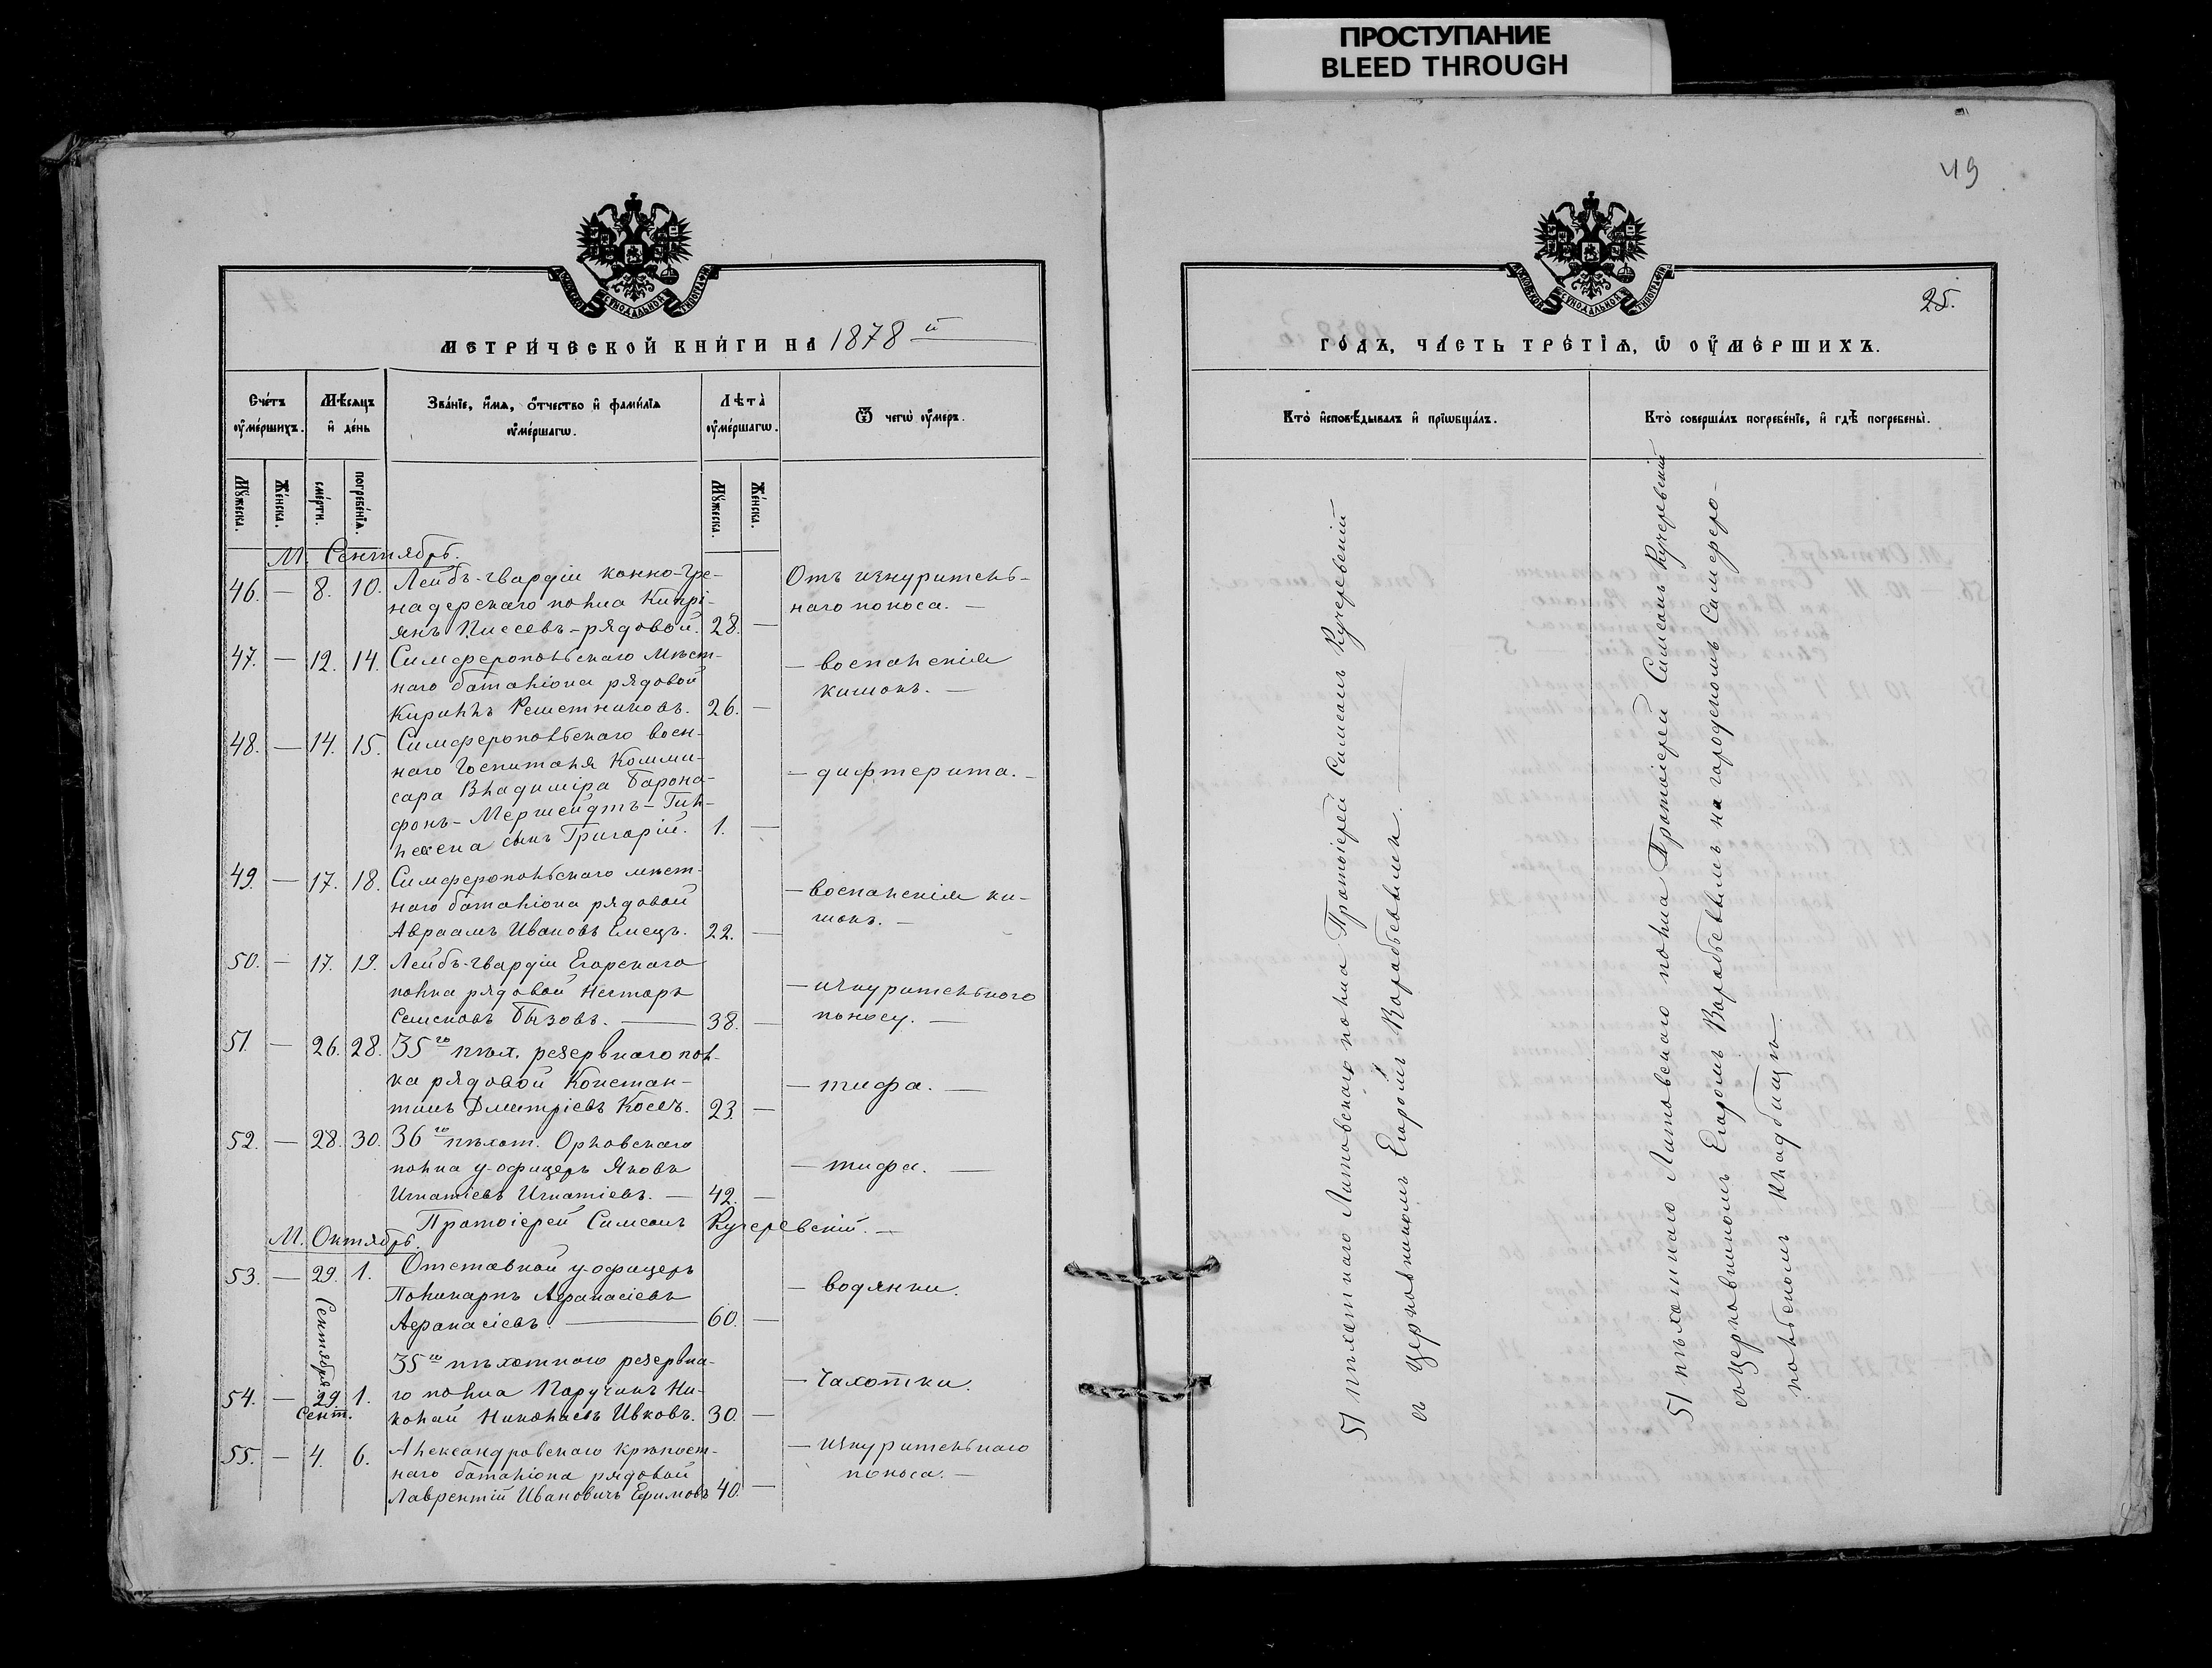 ПРОСТУПАНИЕ
BLEED THROUGH
МЕТРИЧЕСКОЙ КНИГИ НА 1878 й
Счетъ умершихъ.
Мѣсяцъ и день
Званіе, имя, отчество и фамилія умершагѡ.
Лѣта умершагѡ.
Ѿ чегѡ умеръ.
Мужеска.
Женска.
смерти.
погребенія.
Мужеска.
Женска.
М. Сентябрь.
46. — 8. 10. Лейбъ-гвардіи конно-гре-
надерскаго полка Кипрі-
янъ Писсевъ-рядовой. 28. —
Отъ изнуритель-
наго поноса. —
47. — 12. 14. Симферопольскаго Мѣст-
наго баталіона рядовой
Кириллъ Решетниковъ. 26. —
— воспаленія
кишокъ. —
48. — 14. 15. Симферопольскаго воен-
наго Госпиталя Комми-
сара Владиміра Барона-
фонъ-Мершейдтъ-Гил-
лесена сынъ Григорій. 1. —
— дифтерита. —
49. — 17. 18. Симферопольскаго мѣст-
наго баталіона рядовой
Авраамъ Ивановъ Емецъ. 22. —
— воспаленія ки-
шокъ. —
50. — 17. 19. Лейбъ-гвардіи Егорскаго
полка рядовой Несторъ
Семеновъ Бызовъ. — 38. —
— изнурительного
поносу. —
51. — 26. 28. 35го пѣх. резервнаго пол-
ка рядовой Констан-
тинъ Дмитріевъ 23. —
— тифа. —
52. — 28. 30. 36го пѣхот. Орловскаго
полка у-офицеръ Яковъ
Игнатіевъ Игнатіевъ. — 42. —
— тифа. —
Протоіерей Симеонъ Кучеревскій. —
М. Октябрь.
53. — 29. Сентября 1. Отставной у-офицеръ
Поликарпъ Афанасіевъ
Афанасіевъ. — 60. —
— водянки.
54. — 29. Сент. 1. 35го пѣхотнаго резервна-
го полка Поручикъ Ни-
колай Николаевъ Ивковъ. 30. —
— Чахотки.
55. — 4. 6. Александровскаго Крѣпост-
наго баталіона рядовой
Лаврентій Ивановичъ Ефимовъ 40. —
— изнурительнаго
поноса. —
49
25.
ГОДЪ, ЧАСТЬ ТРЕТІЯ, Ѡ УМЕРШИХЪ.
Кто исповѣдывалъ и пріѡбщалъ.
Кто совершалъ погребеніе, и гдѣ погребены.
51 пѣхотнаго Литовскаго полка Протоіерей Симеонъ Кучеревскій
съ Церковникомъ Егоромъ Воробьевымъ. —
51 пѣхотнаго Литовскаго полка Протоіерей Симеонъ Кучеревскій
съ Церковникомъ Егоромъ Воробьевымъ на городскомъ Симферо-
польскомъ Кладбищѣ. —